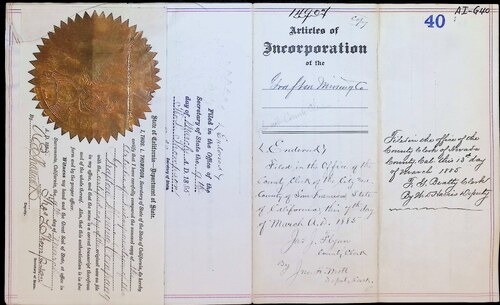 14907
A I-640
40
Articles of
Incorporation
of the
Mining Co
(Endorsed)
Filed in the Office of the
County Clerk of the City and
County of San Francisco State
of California, this 7th day of
March A.D. 1885
Jas. J. Flynn
County Clerk
By
Deputy Clerk
Filed in the office of the
County Clerk of Nevada
County, Cal. this 13th day
of March 1885
F. G. Beatty Clerk
By Deputy
(Endorsed)
Filed in the Office of the
Secretary of State the
day of March A. D. 1885
State of California, Department of State.
I, THOS. L. THOMPSON, Secretary of State of the State of California, do hereby
certify that I have carefully compared the annexed copy of
Articles of Incorporation of
Mining Company
with the original now on file
in my office, and that the same is a correct transcript therefrom,
and of the whole thereof. Also, that this authentication is in due
form and by the proper officer.
WITNESS my hand and the Great Seal of State, at office in
Sacramento, California, the
day of March
A. D. 1885
Thos. L. Thompson
Secretary of State.
By
Deputy.